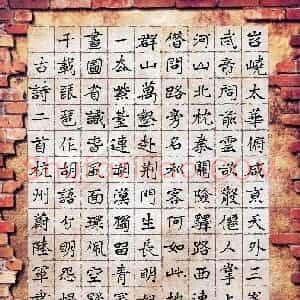 岧嶢太華俯咸京天外三
武帝祠前雲欲散仙人掌
河山北枕秦關險驛路西
借問路旁名利客何如此
群山萬壑赴荊門生長明
一去紫臺連朔漠獨留青
畫圖省識春風面環珮空
千載琵琶作胡語分明怨
古詩二首杭州蔚陸軍